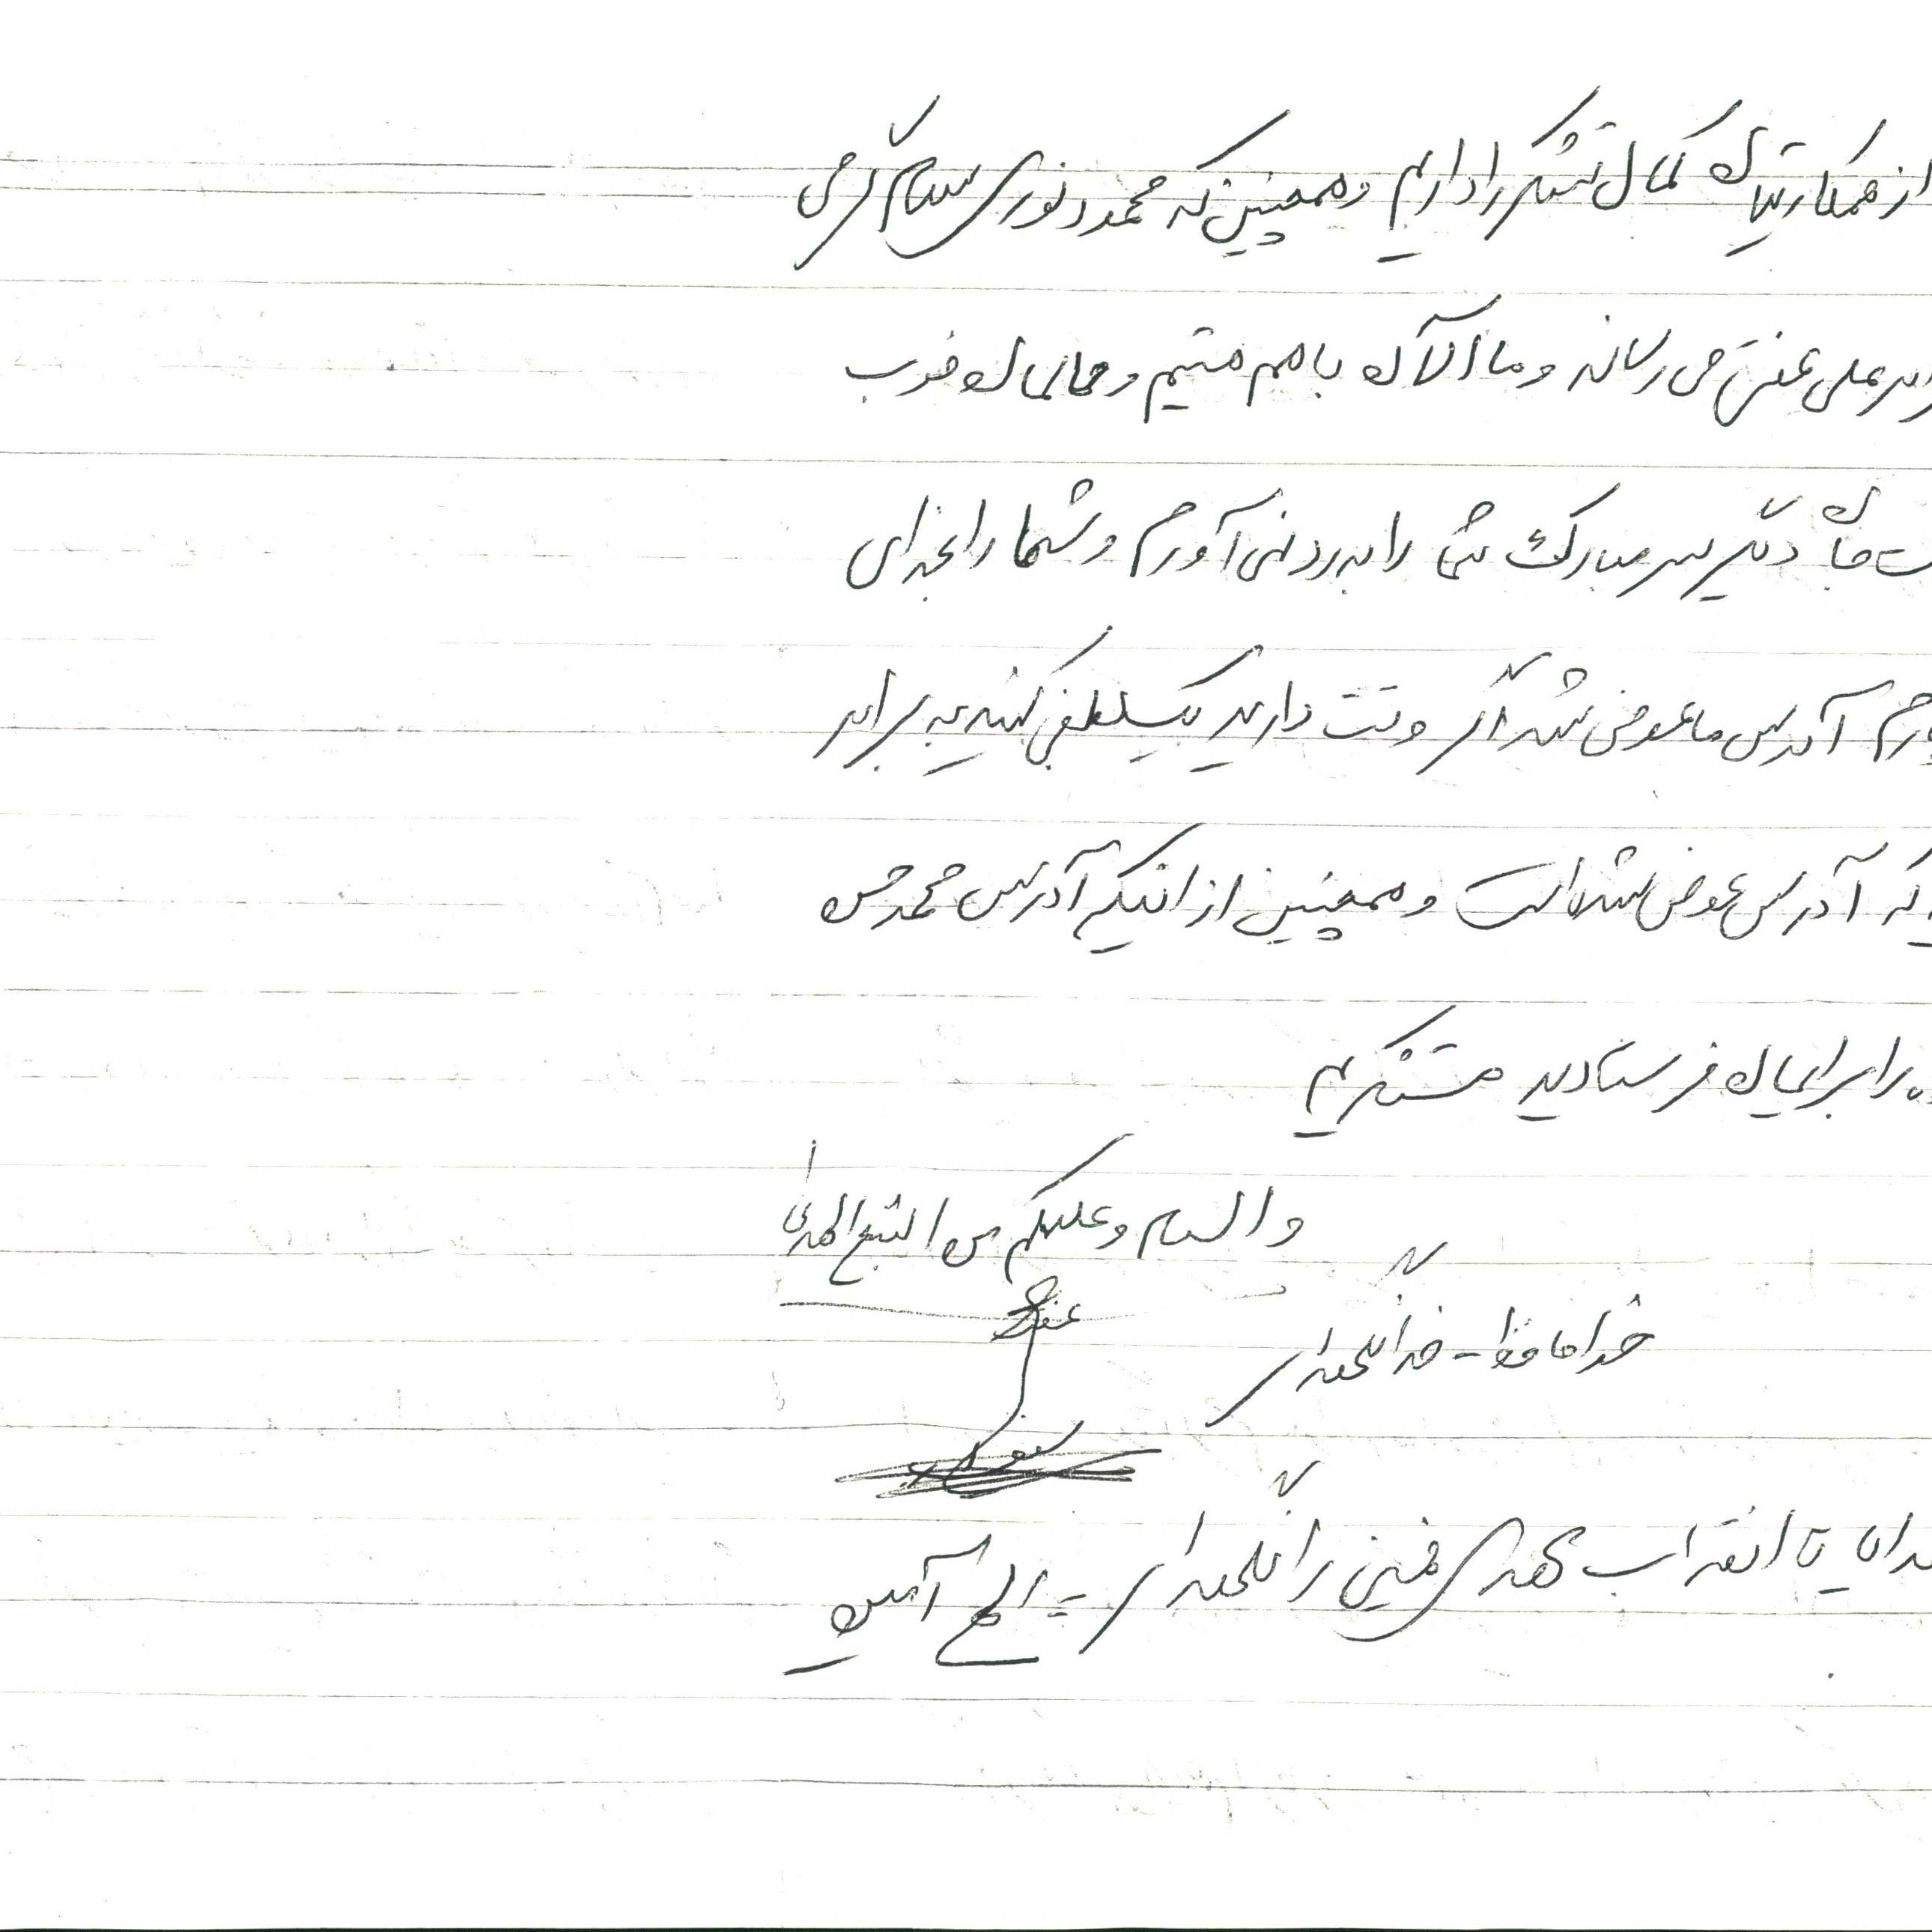 از همکاریتان کمال تشکر را داریم و همچنین که محمود نوری سلام گرمی
می رساند و ما الآن با هم هستیم و حالمان خوب
دیگر سر مبارک شما را بدرد نمی آورم و شما را بخدای
آدرس ما عوض شد اگر وقت دارید یک تلفنی کنید به برادر
که آدرس عوض شده است و همچنین از اینکه آدرس محمد حسن
را برایمان فرستادید متشکریم
والسلام و علیکم من التبع الهدی
خداحافظ - خدا نگهدار
خدایا تا انقلاب مهدی خمینی را نگهدار - الهی آمین